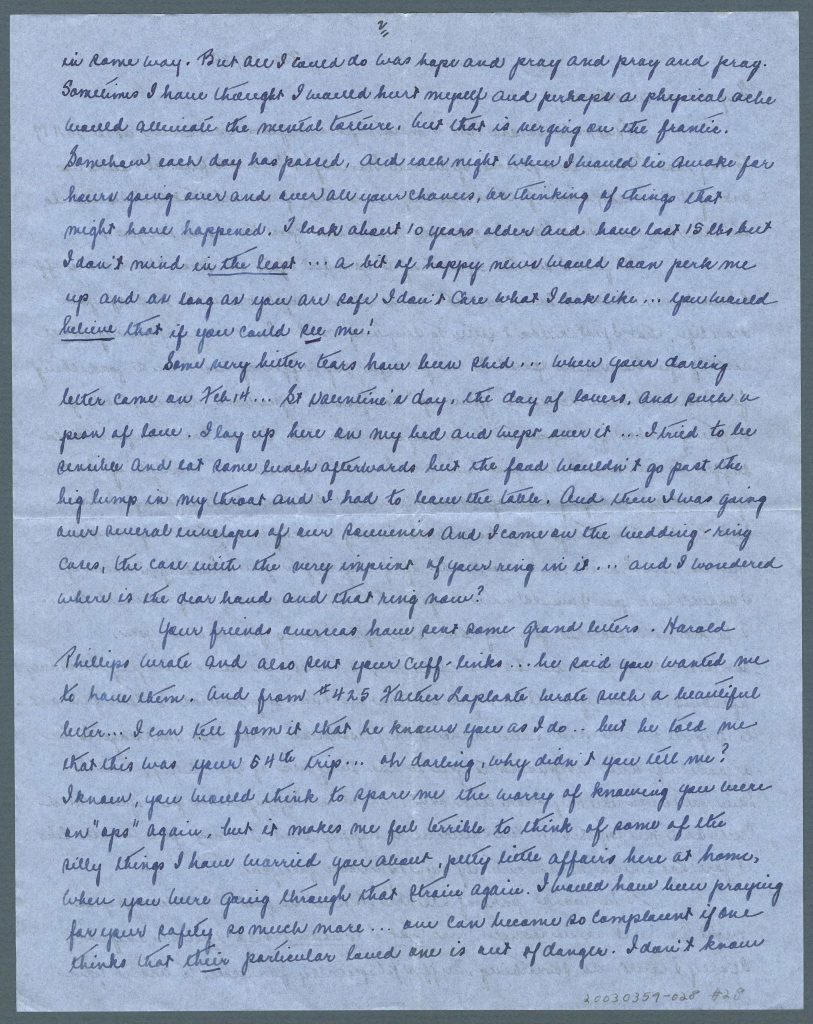 2
in some way. But all I could do was hope and pray and pray and pray.
Sometimes I have thought I would hurt myself and perhaps a physical ache
would alleviate the mental torture, but that is verging on the frantic.
Somehow each day has passed, and each night when I would lie awake for
hours going over and over all your chances, or thinking of things that
might have happened. I look about 10 years older and have lost 15 lbs but
I don't mind in the least ... a bit of happy news would soon perk me
up and as long as you are safe I don't care what I look like ... you would
believe that if you could see me!
Some very bitter tears have been shed ... when your darling
letter came on Feb 14 ... St Valentine's day, the day of lovers, and such a
pean of love. I lay up here on my bed and wept over it ... I tried to be
sensible and eat some lunch afterwards but the food wouldn't go past the
big lump in my throat and I had to leave the table. And then I was going
over several envelopes of our souvenirs and I came on the wedding-ring
cases, the case with the very imprint of your ring in it ... and I wondered
where is the dear hand and that ring now?
Your friends overseas have sent some grand letters. Harold
Phillips wrote and also sent your cuff-links ... he said you wanted me
to have them. And from #425 Father Laplante wrote such a beautiful
letter... I can tell from it that he knows you as I do .. but he told me
that this was your 54th trip ... oh darling, why didn't you tell me?
I know, you would think to spare me the worry of knowing you were
on "ops" again, but it makes me feel terrible to think of some of the
silly things I have worried you about, petty little affairs here at home,
when you were going through that strain again. I would have been praying
for your safety so much more ... one can become so complacent if one
thinks that their particular loved one is out of danger. I don't know
20030359-028 #28